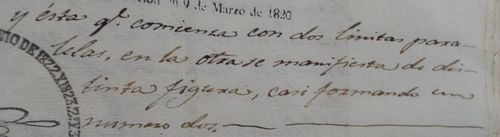 9 de Marzo de 1820.
y ésta q.e comienza con dos linitas para-
lelas, en la otra se manifiesta de dis-
tinta figura, casi formando un
numero dos.
TO DE 1822 Y 1823.